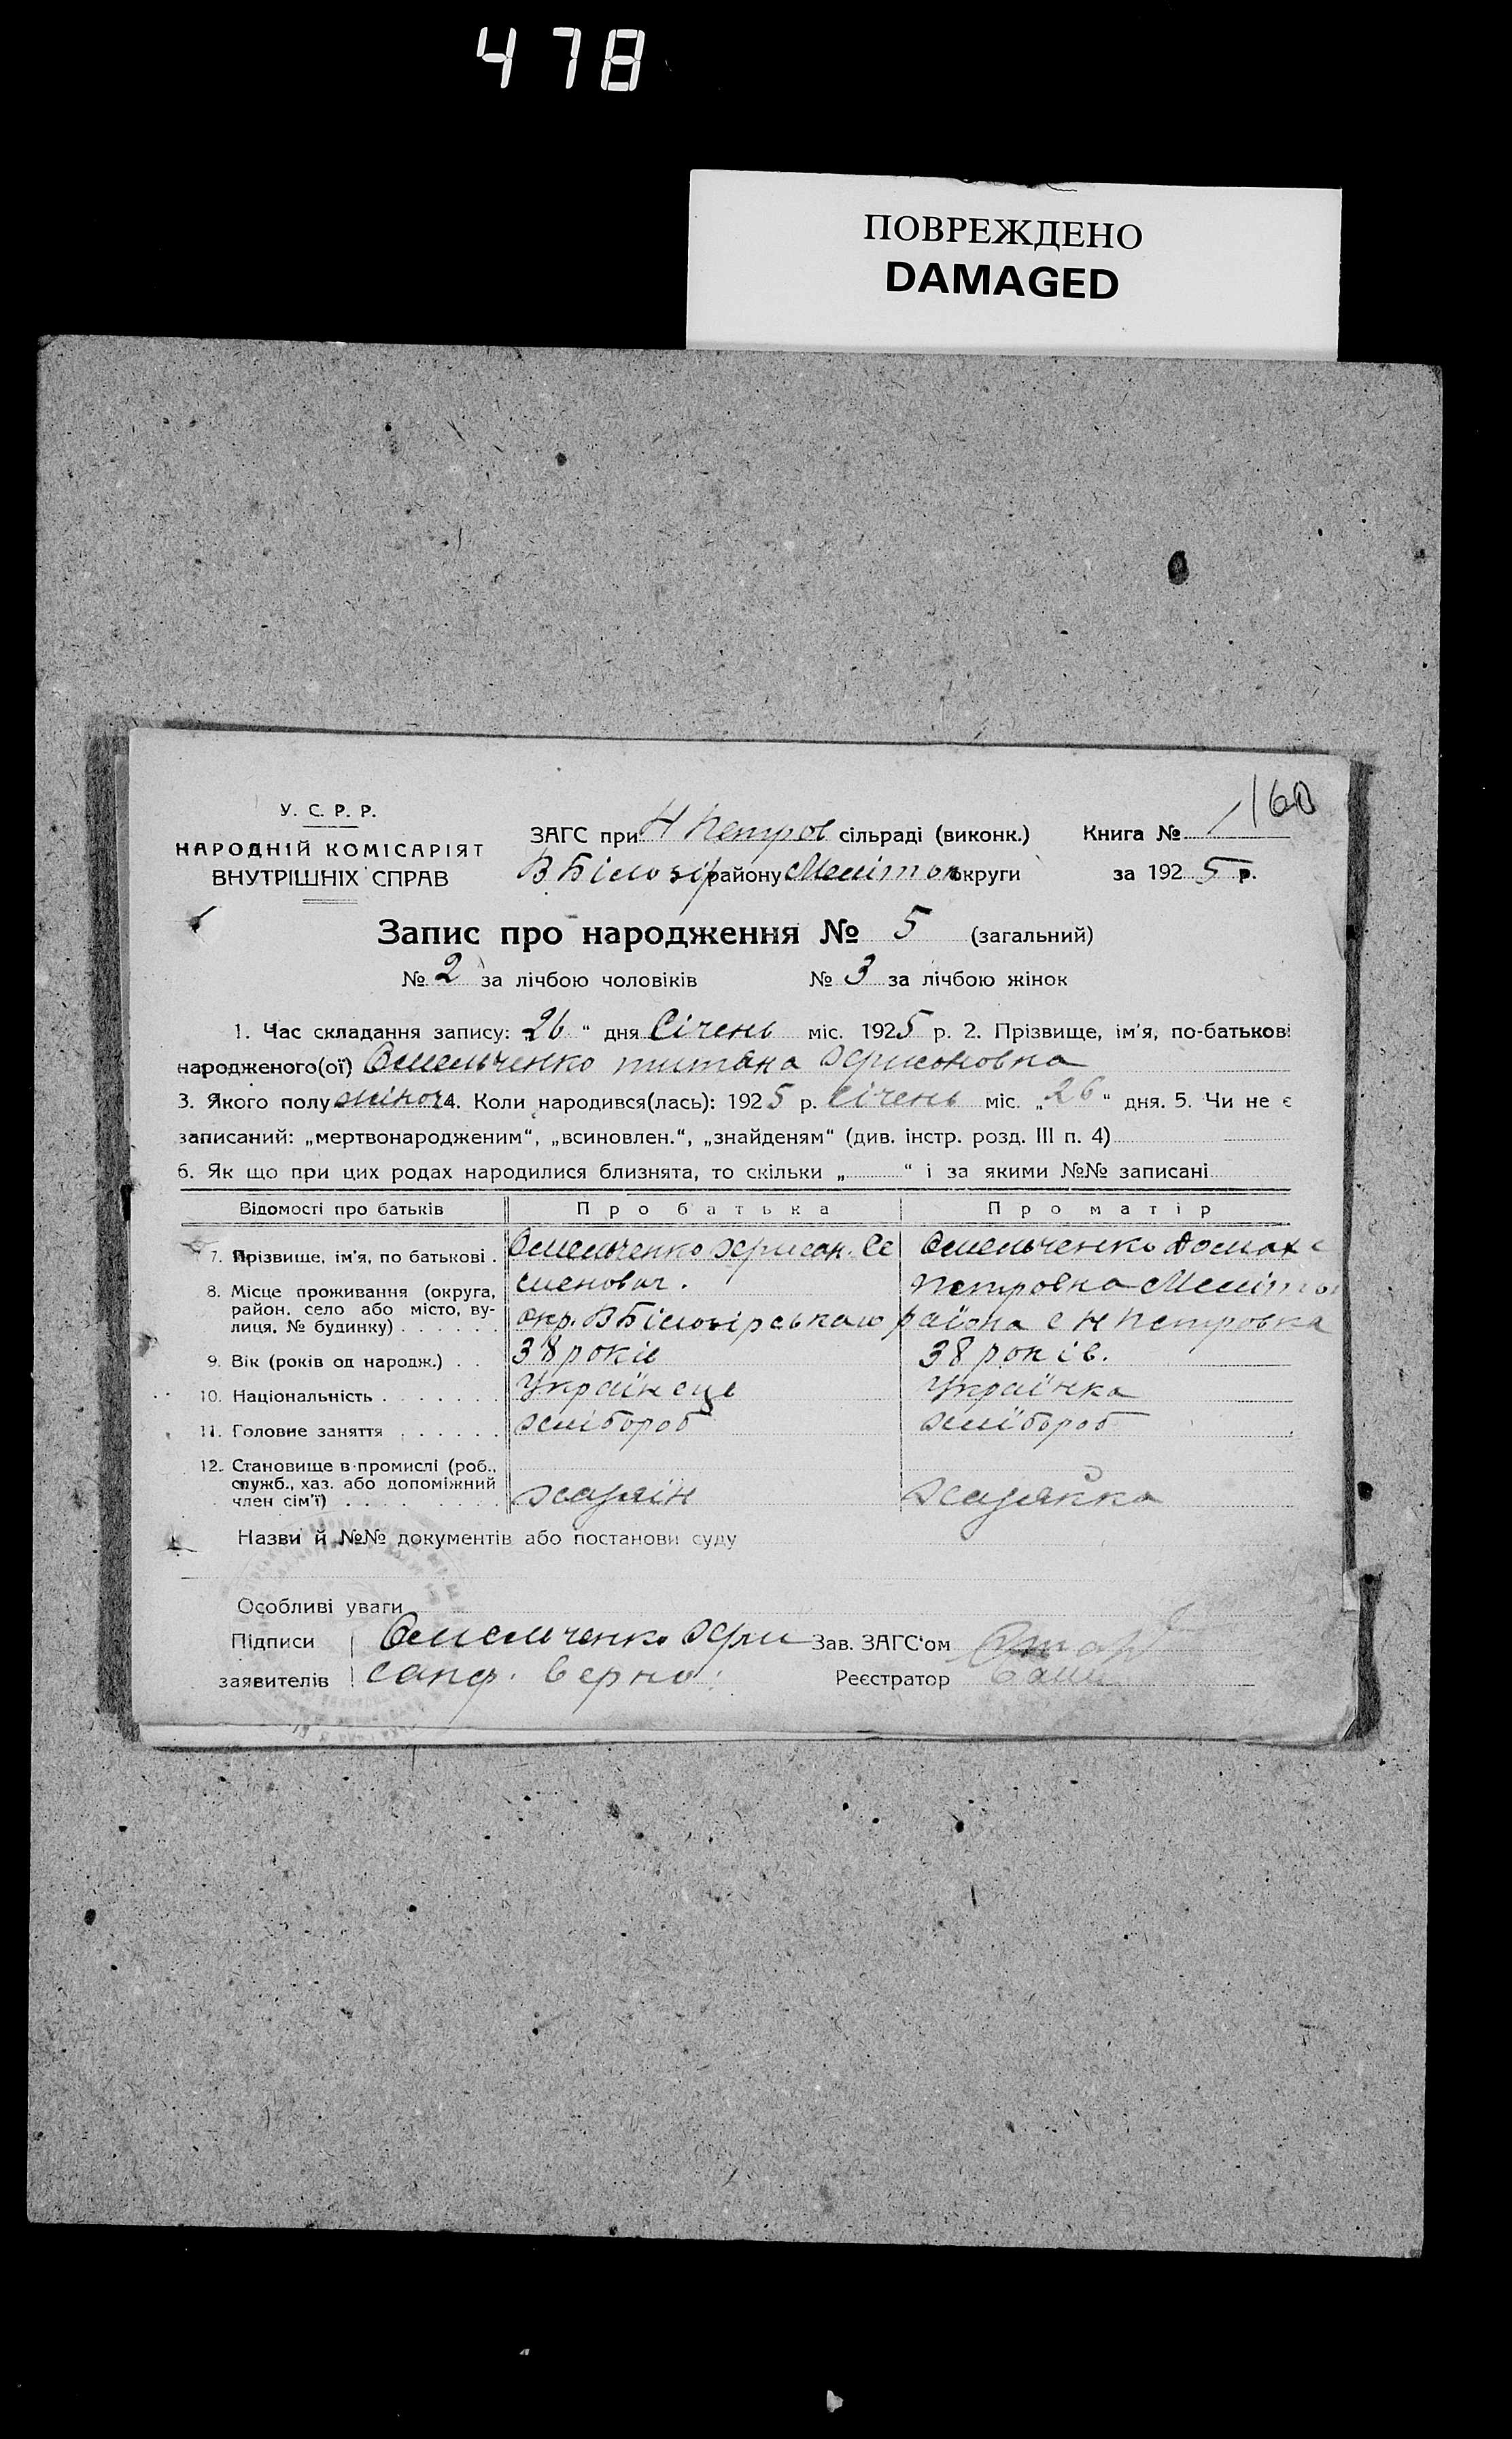 478
ПОВРЕЖДЕНО
DAMAGED
160
У. С. Р. Р.
НАРОДНІЙ КОМІСАРІЯТ
ВНУТРІШНІХ СПРАВ
ЗАГС при Н Петров сільраді (виконк.) Книга №
В Білозір району Меліток округи за 1925 р.
Запис про народження № 5 (загальний)
№ 2 за лічбою чоловіків № 3 за лічбою жінок
1. Час складання запису: 26 " дня Січень міс. 1925 р. 2. Прізвище, ім'я, по-батькові
народженого(ої) Омельченко титяна Хрисоновна
3. Якого полу жіноч 4. Коли народився(лась): 1925 р. Січень міс. „26" дня. 5. Чи не є
записаний: „мертвонародженим", „всиновлен.", „знайденям" (див. інстр. розд. III п. 4)
6. Як що при цих родах народилися близнята, то скільки „ " і за якими №№ записані
Відомості про батьків Про батька Про матір
7. Прізвище, ім'я, по батькові . Омельченко Хрисан. Се Омельченко Домах
меновач. петровна Меліт
8. Місце проживання (округа,
район, село або місто, ву-
лиця, № будинку) . . . . . . окр. В Білозірського района с Н петровка
9. Вік (років од народж.) . . 38 років 38 років.
10. Національність . . . . . . Українець Українка
11. Головне заняття . . . . . . хлібороб хлібороб
12. Становище в промислі (роб.,
служб., хаз. або допоміжний
член сім'ї) . . . . . . . . хазяін хазяйка
Назви й №№ документів або постанови суду
Особливі уваги
Підписи Омельченко Хри Зав. ЗАГС'ом
заявителів санф. верно: Реєстратор